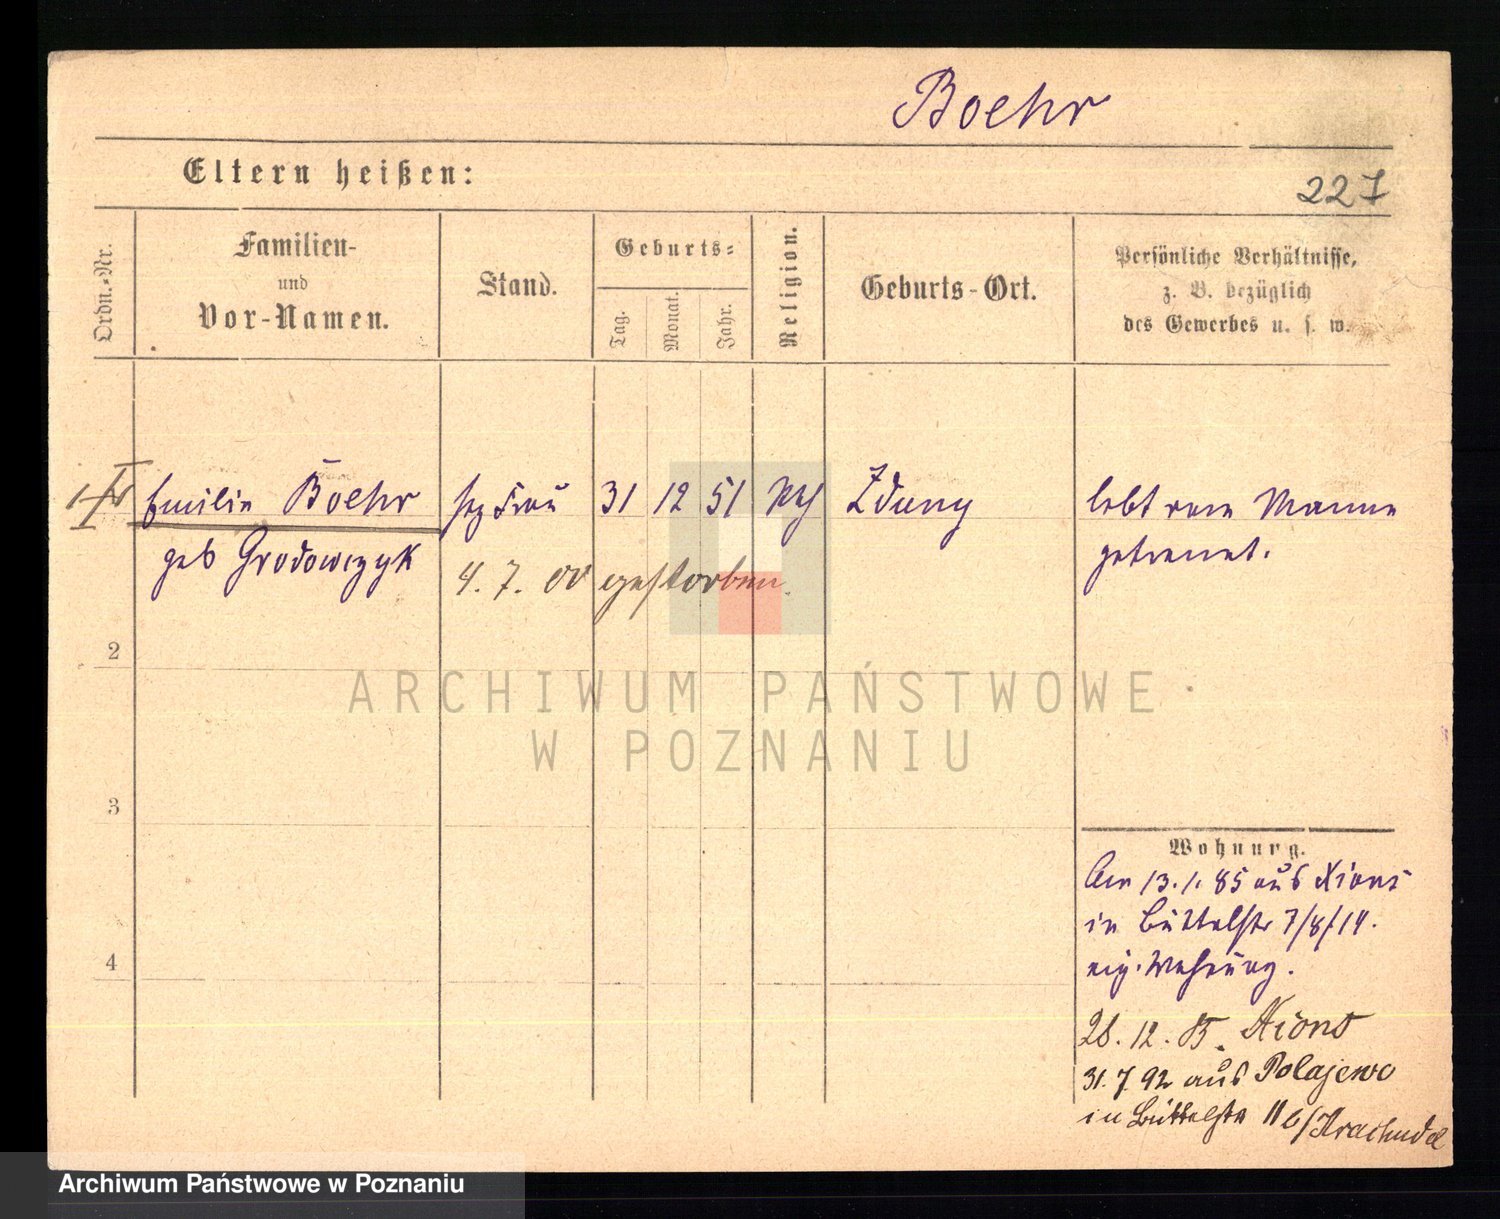 Boehr
Eltern heißen:
227
Ordn.-Nr.
Familien-
und
Vor-Namen.
Stand.
Geburts-
Tag.
Monat.
Jahr.
Religion.
Geburts-Ort.
Persönliche Verhältnisse,
z. B. bezüglich
des Gewerbes u. s. w.
Emilie Boehr
geb Grodowczyk
sep Frau
31 12 51
Zduny
lebt vom Manne
getrennt.
4. 7. 00 gestorben.
2
3
4
ARCHIWUM PAŃSTWOWE
W POZNANIU
Wohnung.
Am 13. 1. 85 aus Xions
in Büttelstr 7/8/14.
eig. Wohnung.
28. 12. 85. Xions
31. 7. 92 aus Polajewo
in Büttelstr 11 b/
Archiwum Państwowe w Poznaniu